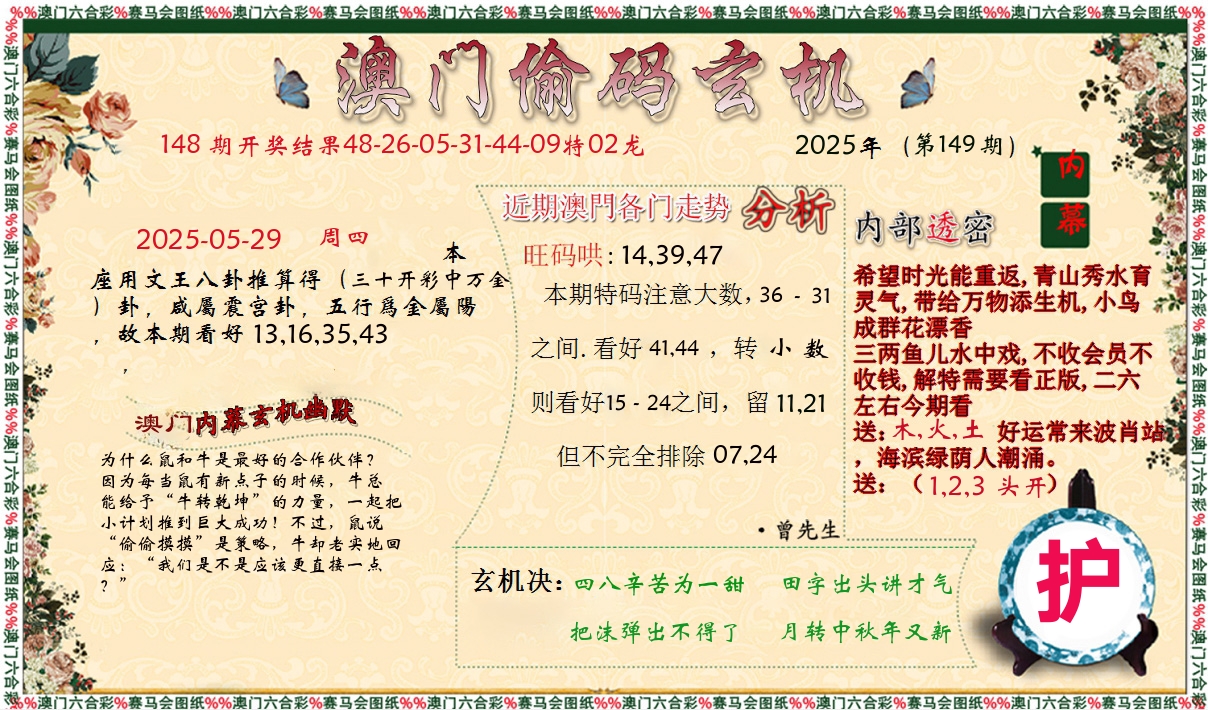 %%澳门六合彩%赛马会图纸%%澳门六合彩%赛马会图纸%%澳门六合彩%赛马会图纸%%澳门六合彩%赛马会图纸%%澳门六合彩%赛马会图纸%%澳门六合彩%赛马会图纸%%
澳门偷码玄机
148 期开奖结果48-26-05-31-44-09特02龙
2025年（第149期）
内
幕
2025-05-29 周四
本
座用文王八卦推算得（三十开彩中万金
）卦，咸屬震宫卦，五行爲金屬陽
，故本期看好 13,16,35,43
，
澳门内幕玄机幽默
为什么鼠和牛是最好的合作伙伴？
因为每当鼠有新点子的时候，牛总
能给予“牛转乾坤”的力量，一起把
小计划推到巨大成功！不过，鼠说
“偷偷摸摸”是策略，牛却老实地回
应：“我们是不是应该更直接一点
？”
近期澳門各门走势 分析
旺码哄：14,39,47
本期特码注意大数，36 - 31
之间. 看好 41,44 ，转 小 数
则看好15 - 24之间，留 11,21
但不完全排除 07,24
·曾先生
内部透密
希望时光能重返, 青山秀水育
灵气, 带给万物添生机, 小鸟
成群花漂香
三两鱼儿水中戏, 不收会员不
收钱, 解特需要看正版, 二六
左右今期看
送：木,火,土 好运常来波肖站
，海滨绿荫人潮涌。
送：（1,2,3 头开）
玄机决：四八辛苦为一甜 田字出头讲才气
把沫弹出不得了 月转中秋年又新
护
%%澳门六合彩%赛马会图纸%%澳门六合彩%赛马会图纸%%澳门六合彩%赛马会图纸%%澳门六合彩%赛马会图纸%%澳门六合彩%赛马会图纸%%澳门六合彩%赛马会图纸%%